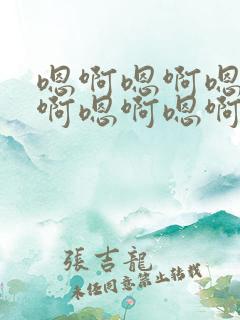 嗯啊嗯啊嗯
啊嗯啊嗯啊
張吉龍
未經同意禁止轉載